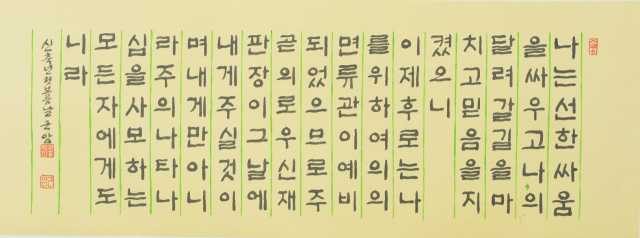 나는선한싸움
을싸우고나의
달려갈길을마
치고믿음을지
켰으니
이제후로는나
를위하여의의
면류관이예비
되었으므로주
곧의로우신재
판장이그날에
내게주실것이
며내게만아니
라주의나타나
심을사모하는
모든자에게도
니라
신축년첫보름날